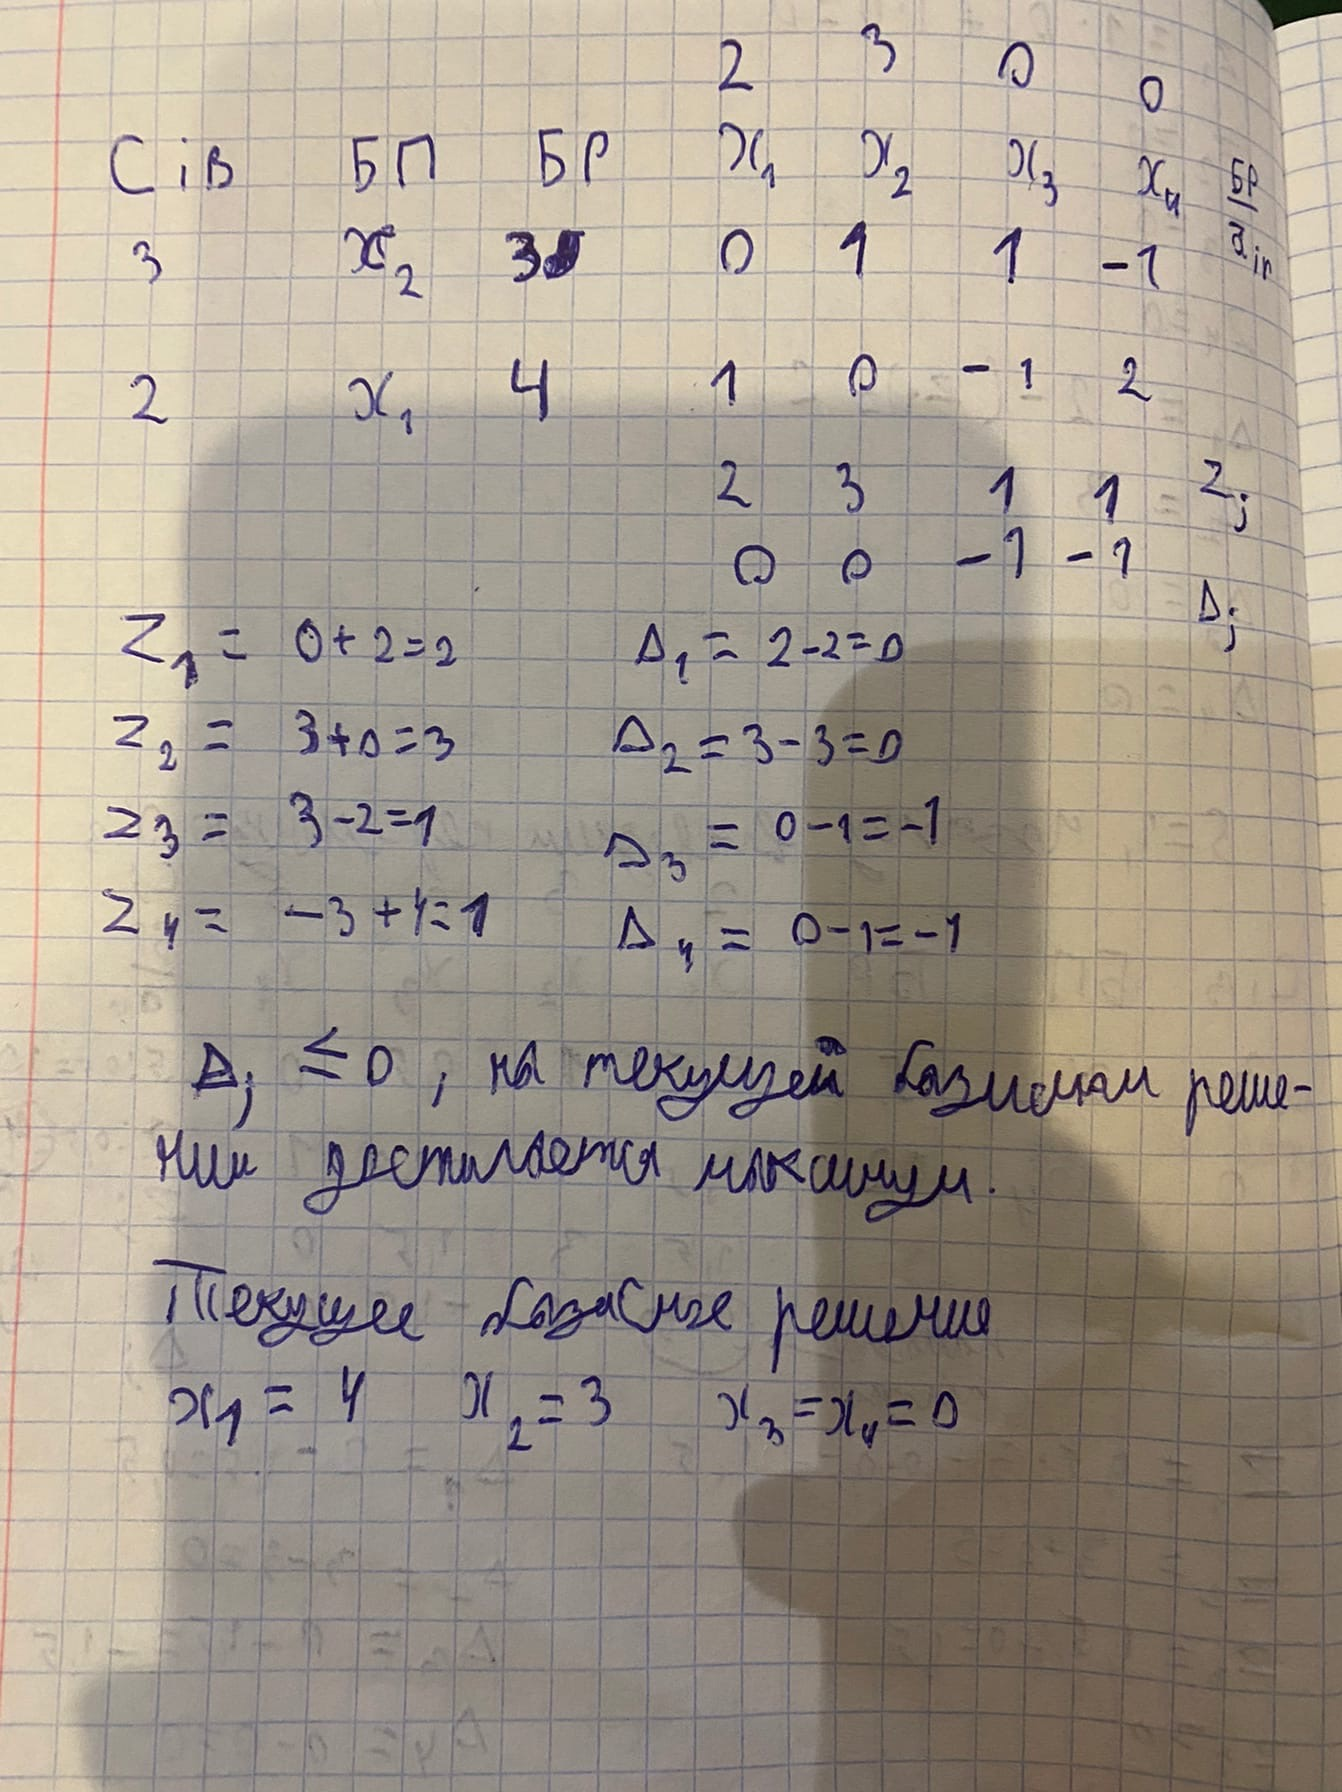 2 3 0 0
CiB БП БР x₁ x₂ x₃ x₄ БР/a_ir
3 x₂ 3 0 1 1 -1
2 x₁ 4 1 0 -1 2
2 3 1 1 Z_j
0 0 -1 -1 Δ_j
Z₁ = 0+2=2 Δ₁ = 2-2=0
Z₂ = 3+0=3 Δ₂ = 3-3=0
Z₃ = 3-2=1 Δ₃ = 0-1=-1
Z₄ = -3+4=1 Δ₄ = 0-1=-1
Δ_j ≤ 0, на текущем базисном реше-
нии достигается максимум.
Текущее базисное решение
x₁ = 4 x₂ = 3 x₃ = x₄ = 0